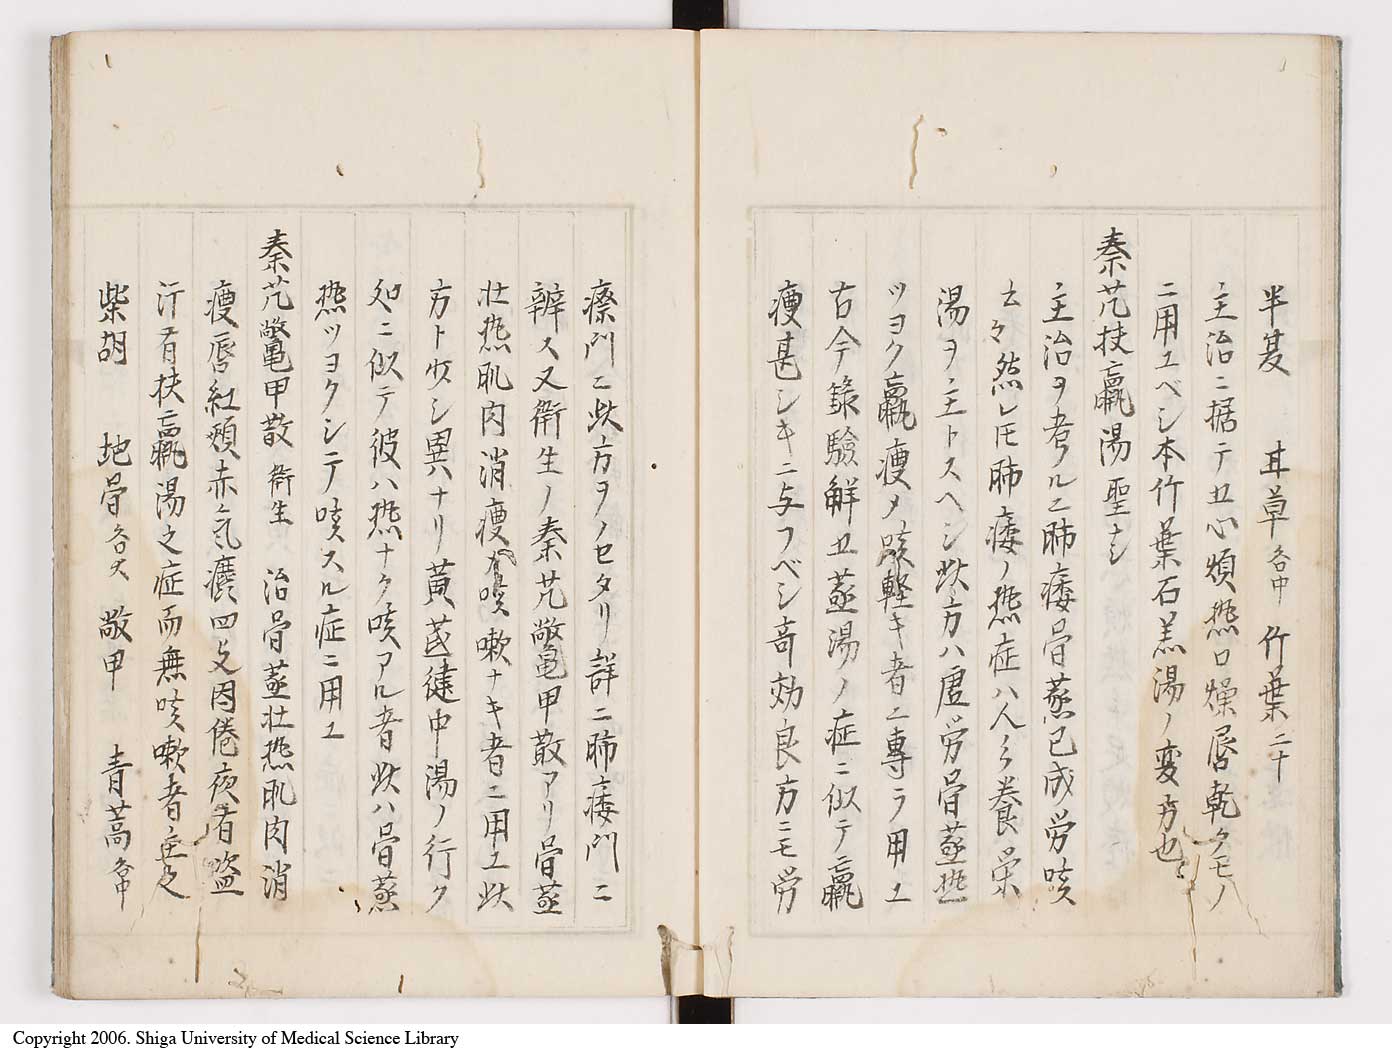 半夏 甘草各中 竹葉二十
主治ニ据テ五心煩熱口燥唇乾クモノ
ニ用ユベシ本竹葉石羔湯ノ変方也
秦艽扶羸湯 聖
主治ヲ考ルニ肺痿骨蒸已成労咳
云々然レ𪜈肺痿ノ熱症ハ人々養栄
湯ヲ主トスヘシ此方ハ虚労骨蒸熱
ツヨク羸痩メ咳軽キ者ニ専ラ用ユ
古今録驗解五蒸湯ノ症ニ似テ羸
痩甚シキニ与フベシ奇効良方ニモ労
瘵門ニ此方ヲノセタリ詳ニ肺痿門ニ
辨ス又衛生ノ秦艽鱉甲散アリ骨蒸
壮熱肌肉消痩咳嗽ナキ者ニ用ユ此
方ト少シ異ナリ黄芪建中湯ノ行ク
処ニ似テ彼ハ熱ナク咳アル者此ハ骨蒸
熱ツヨクシテ咳スル症ニ用ユ
秦艽鱉甲散 衛生 治骨蒸壮熱肌肉消
痩唇紅頰赤気麤四支困倦夜有盗
汗有扶羸湯之症而無咳嗽者主之
柴胡 地骨各大 敝甲 青蒿各中
Copyright 2006. Shiga University of Medical Science Library